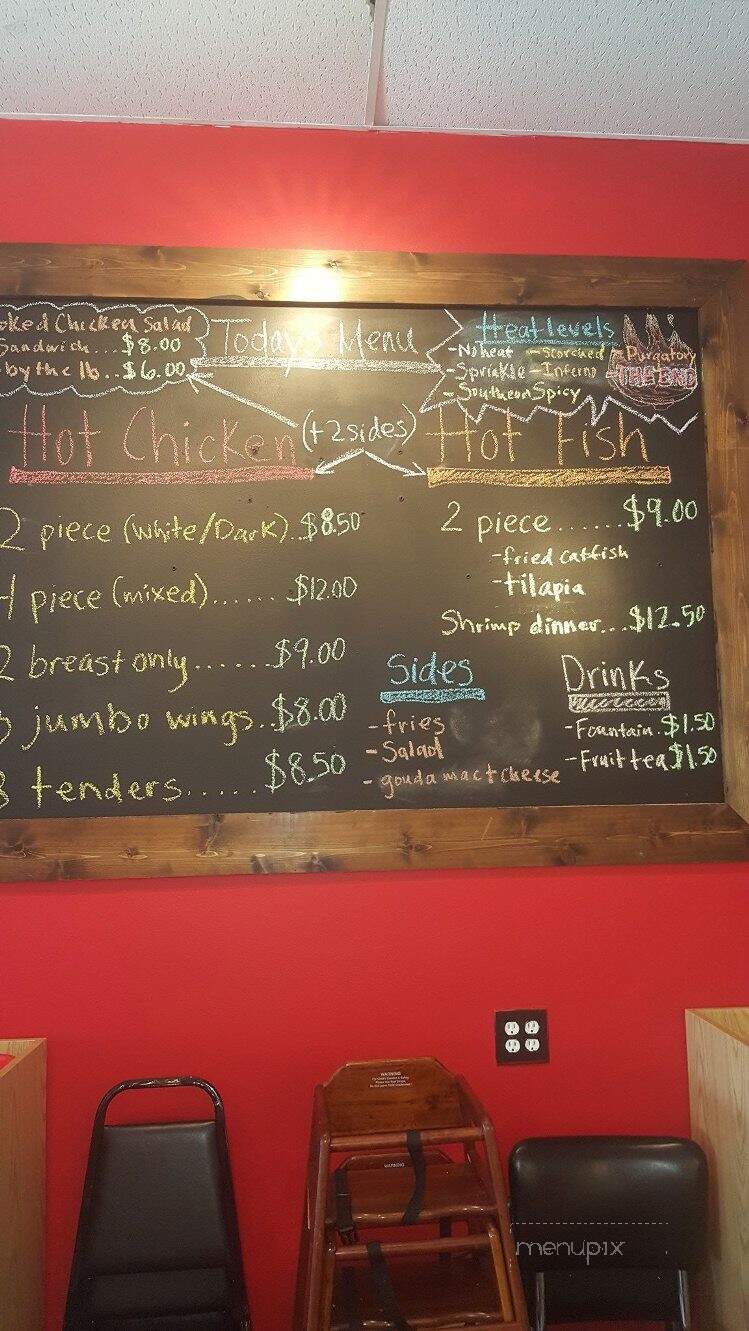 oked Chicken Salad
Sandwich... $8.00
by the lb.. $6.00
Today's Menu
Heat levels
- No heat - Scorched - Purgatory
- Sprinkle - Inferno - THE END
- Southern Spicy
Hot Chicken (+2 sides) Hot Fish
2 piece (White/Dark).. $8.50
4 piece (mixed)...... $12.00
2 breast only...... $9.00
jumbo wings.. $8.00
3 tenders...... $8.50
2 piece...... $9.00
- fried catfish
- tilapia
Shrimp dinner... $12.50
Sides
- fries
- Salad
- gouda mac + cheese
Drinks
- Fountain. $1.50
- Fruit tea $1.50
WARNING
WARNING
menupix